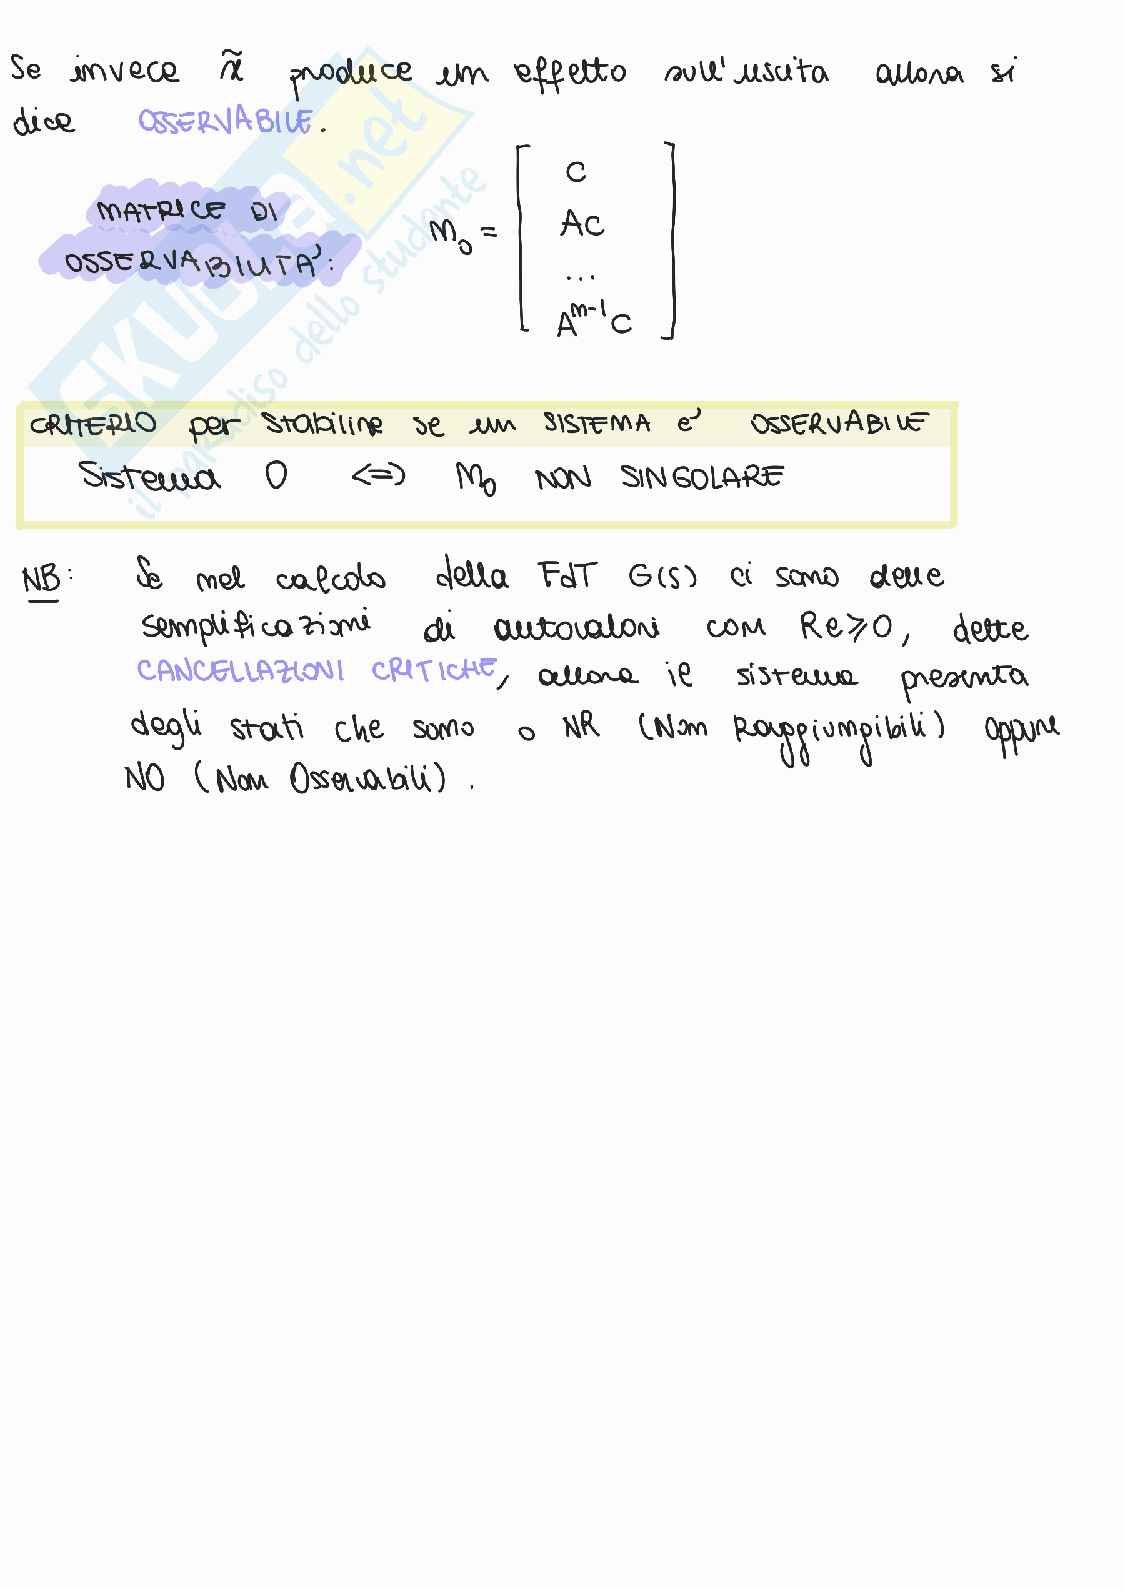 Se invece x̃ produce un effetto sull'uscita allora si
dice OSSERVABILE.
MATRICE DI
OSSERVABILITA':
M₀ =
C
AC
...
Aⁿ⁻¹C
CRITERIO per stabilire se un SISTEMA e' OSSERVABILE
Sistema O <=> M₀ NON SINGOLARE
NB: Se nel calcolo della FdT G(s) ci sono delle
semplificazioni di autovalori con Re⩾0, dette
CANCELLAZIONI CRITICHE, allora il sistema presenta
degli stati che sono o NR (Non Raggiungibili) oppure
NO (Non Osservabili).
SKUOLA.net
il paradiso dello studente